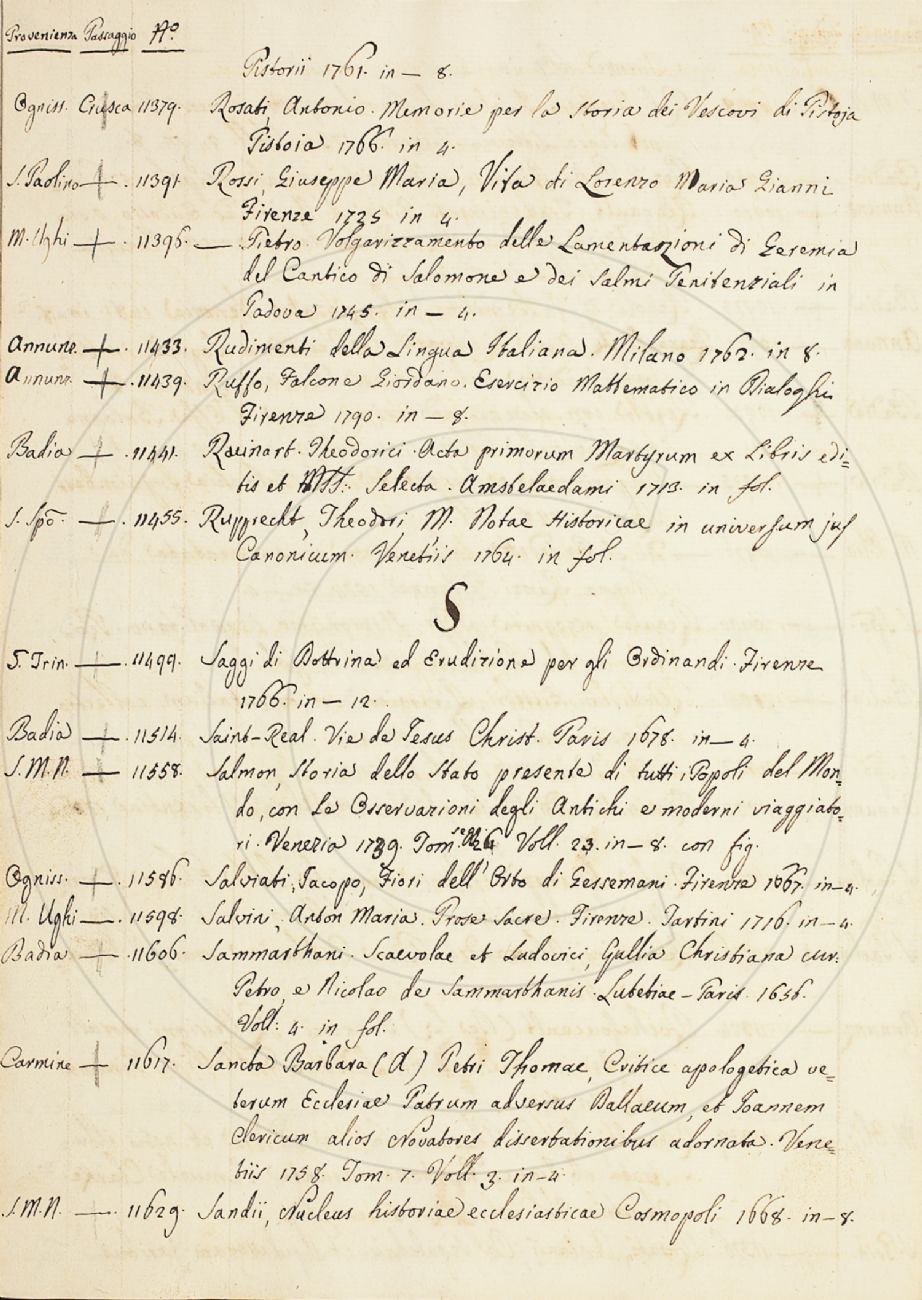 Provenienza Passaggio Nº.
Pistorii 1761. in — 8.
Ogniss. Crusca 11379. Rosati, Antonio. Memorie per la Storia dei Vescovi di Pistoja
Pistoia 1766. in 4.
S. Paolino — . 11391 Rossi, Giuseppe Maria, Vita di Lorenzo Maria Gianni
Firenze 1725 in 4.
M. Ughi — . 11396. — Pietro. Volgarizzamento delle Lamentazioni di Geremia
del Cantico di Salomone e dei Salmi Penitenziali in
Padova 1745. in — 4.
Annunz. — . 11433. Rudimenti della Lingua Italiana. Milano 1762. in 8.
Annunz. — . 11439. Ruffo, Falcone Giordano. Esercizio Mattematico in Dialoghi
Firenze 1790. in — 8.
Badia — . 11441. Ruinart. Theodorici. Acta primorum Martyrum ex Libris edi=
tis et MSS. Selecta. Amstelaedami 1713. in fol.
S. Spō. — . 11455. Rupprecht, Theodori M. Notae Historicae in universum jus
Canonicum. Venetiis 1764. in fol.
S
S. Trin. — . 11499. Saggi di Dottrina ed Erudizione per gli Ordinandi. Firenze
1766. in — 12.
Badia — . 11514. Saint-Real. Vie de Jesus Christ. Paris 1678. in — 4.
S. M. N. — 11558. Salmon, Storia dello Stato presente di tutti i Popoli del Mon=
do, con Le Osservazioni degli Antichi e moderni viaggiato=
ri. Venezia 1739. Tom. 24 Voll. 23. in — 8. con fig.
Ogniss. — . 11586. Salviati, Jacopo, Fiori dell' Orto di Gessemani. Firenze 1667. in — 4.
M. Ughi — . 11598. Salvini, Anton Maria. Prose Sacre. Firenze. Tartini 1716. in — 4.
Badia — . 11606. Sammarthani. Scaevolae et Ludovici, Gallia Christiana cur.
Petro, e Nicolao de Sammarthanis. Lutetiae — Paris. 1656.
Voll: 4. in fol.
Carmine — 11617. Sancta Barbara (A) Petri Thomae, Critice apologetica ve=
terum Ecclesiae Patrum adversus Dallaeum, et Joannem
Clericum alios Novatores dissertationibus adornata. Vene=
tiis 1758. Tom. 7. Voll. 3. in — 4.
S. M. N. — . 11629. Sandii, Nucleus historiae ecclesiasticae Cosmopoli 1668. in — 8.